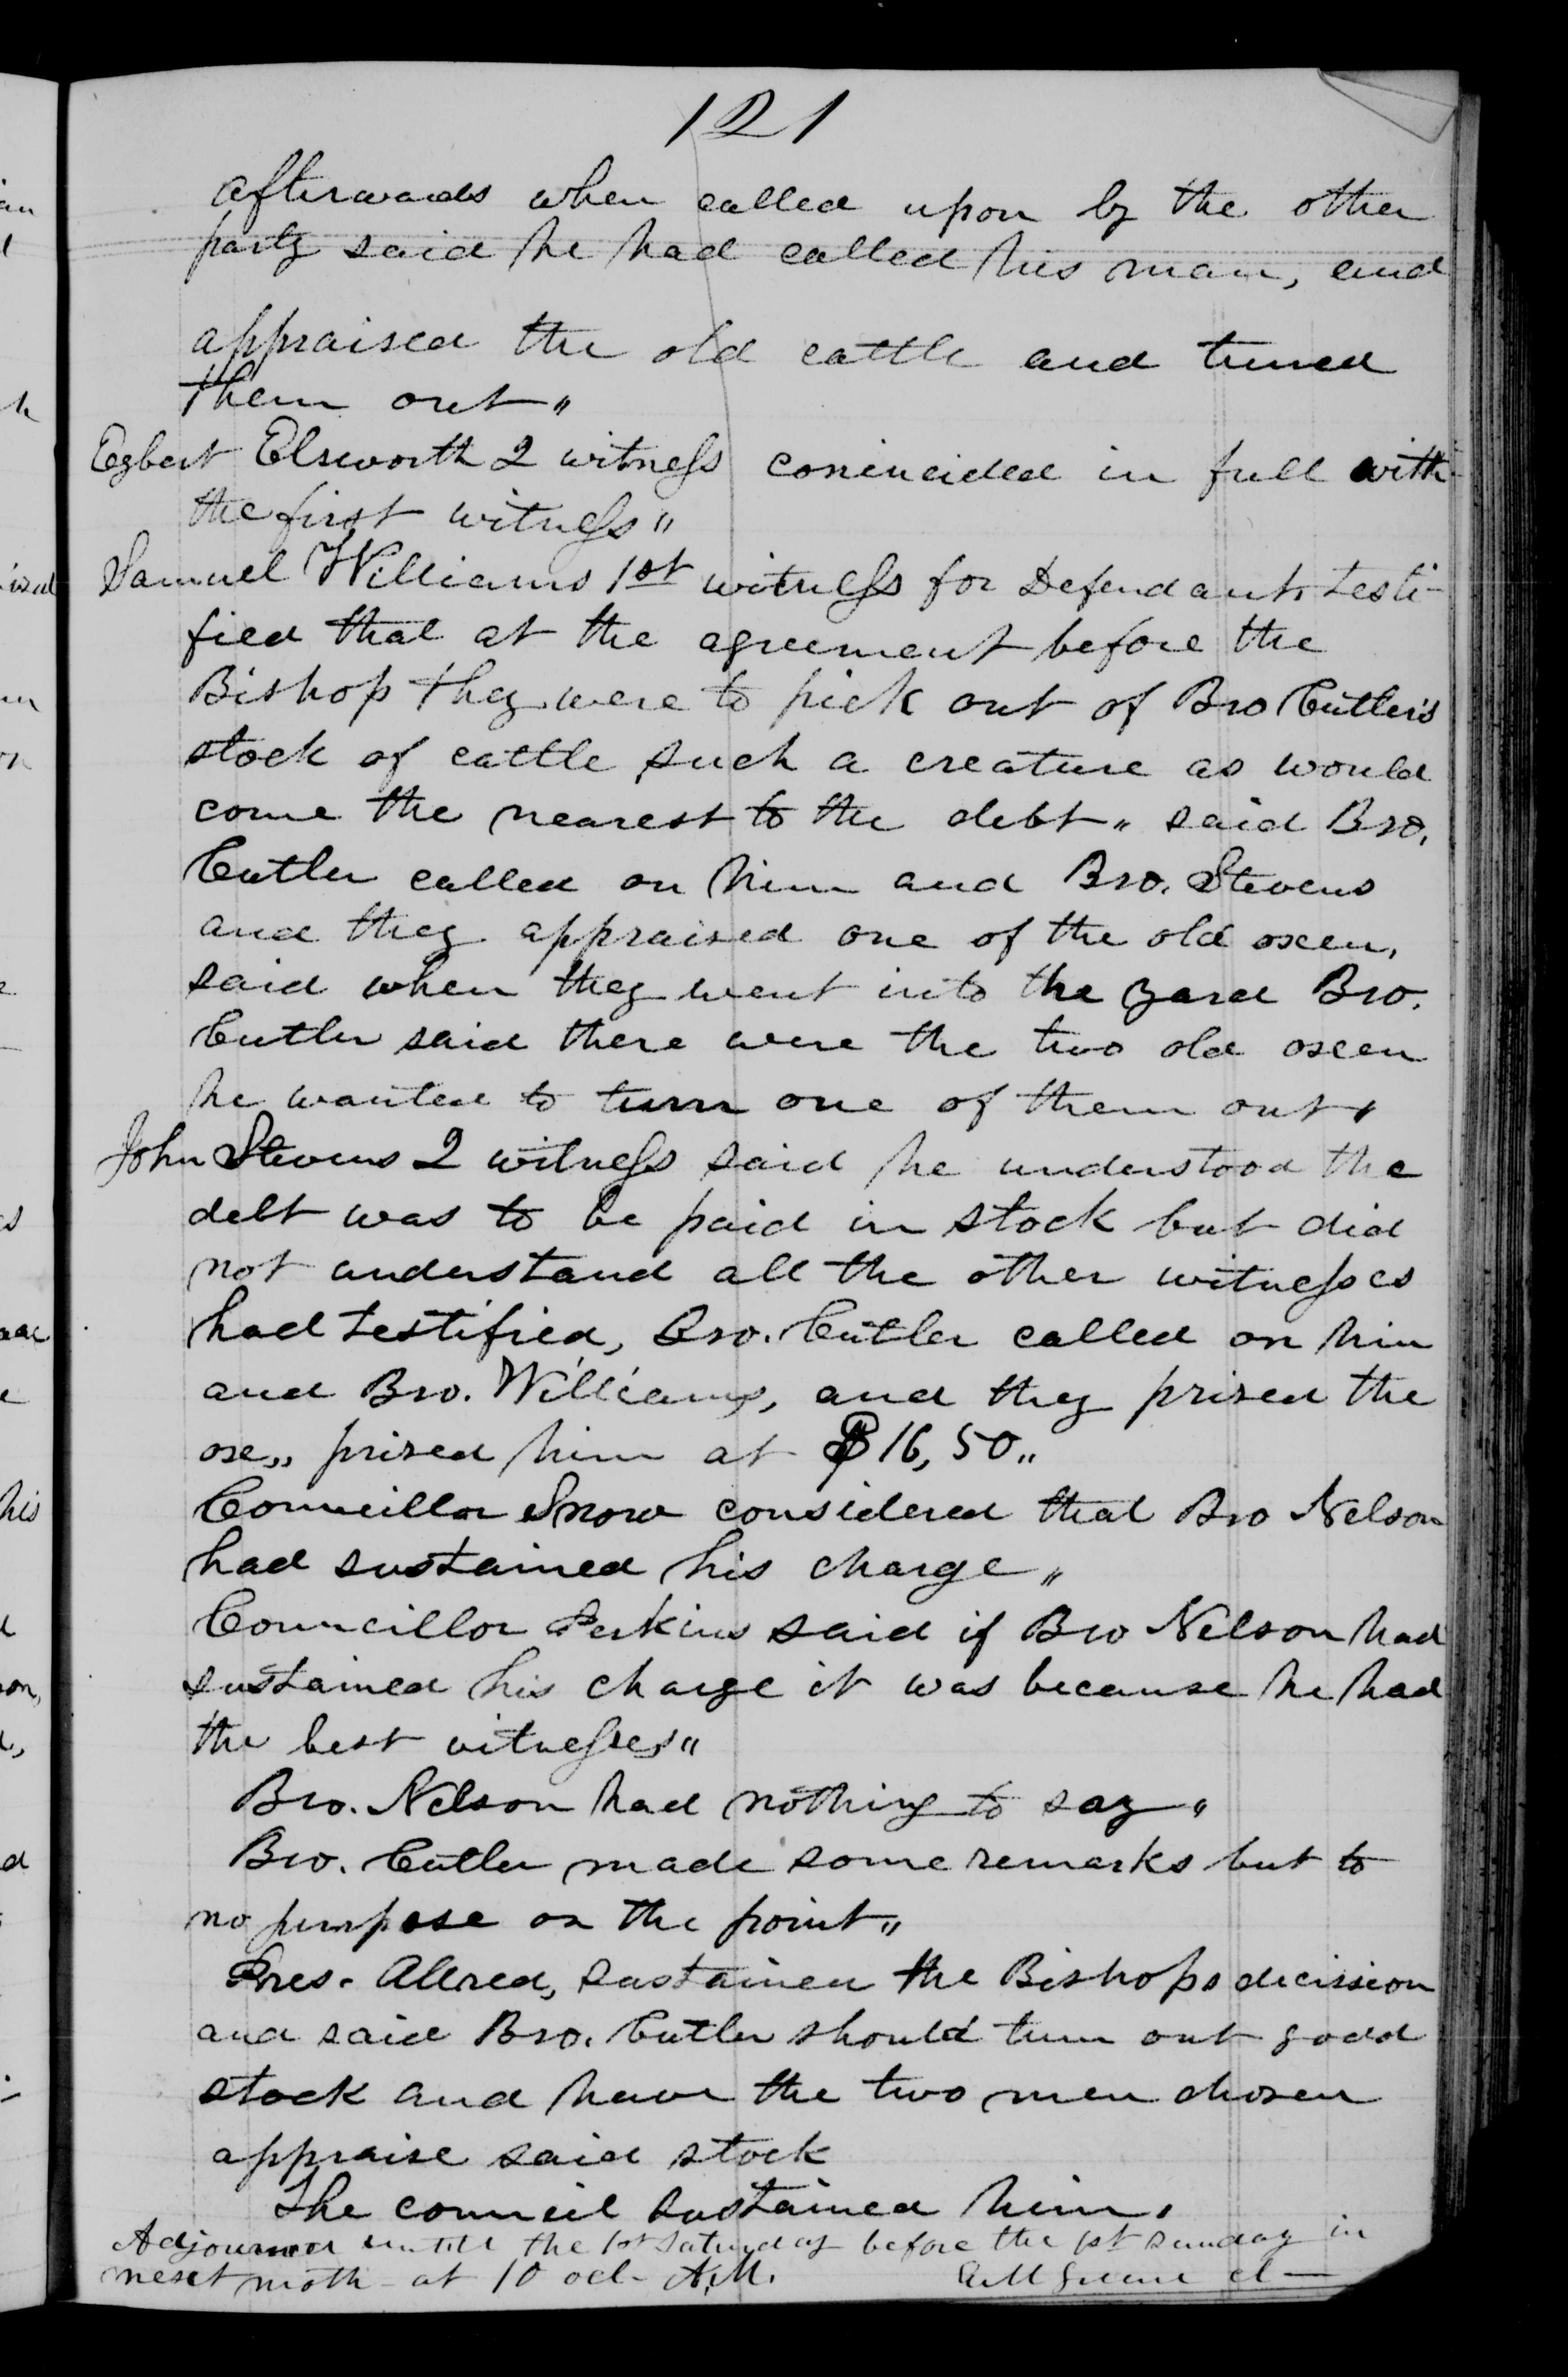 121
afterwards when called upon by the other
party said he had called his man, and
appraised the old cattle and turned
them out "
Egbert Elsworth 2 witness conincided in full with
the first witness "
Samuel Williams 1st witness for Defendant, testi-
fied that at the agreement before the
Bishop they were to pick out of Bro Cutler's
stock of cattle such a creature as would
come the nearest to the debt " said Bro.
Cutler called on him and Bro. Stevens
and they appraised one of the old oxen,
said when they went into the yard Bro.
Cutler said there were the two old oxen
he wanted to turn one of them out,
John Stevens 2 witness said he understood the
debt was to be paid in stock but did
not understand all the other witnesses
had testified, Bro. Cutler called on him
and Bro. Williams, and they prised the
ox „ prised him at $16,50 „
Councillor Snow considered that Bro Nelson
had sustained his charge "
Councillor Perkins said if Bro Nelson had
sustained his charge it was because he had
the best witnesses "
Bro. Nelson had nothing to say "
Bro. Cutler made some remarks but to
no purpose on the point "
Pres. Allred, sustained the Bishops decission
and said Bro. Cutler should turn out good
stock and have the two men chosen
appraise said stock
The council sustained him,
Adjourned untill the 1st Saturday before the 1st Sunday in
next moth - at 10 ocl - A.M.
cl —